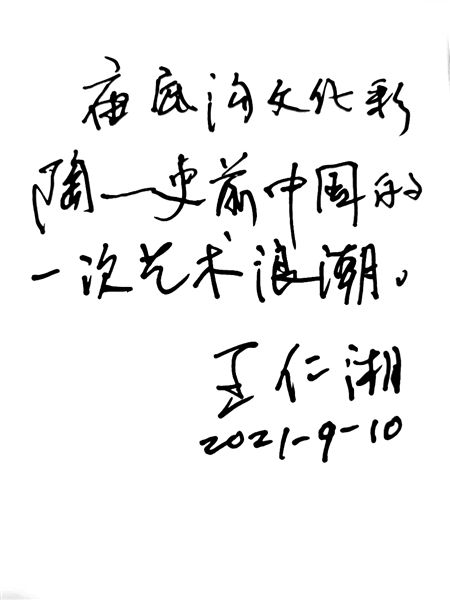 庙底沟文化彩
陶一史前中国的
一次艺术浪潮。
王仁湘
2021-9-10